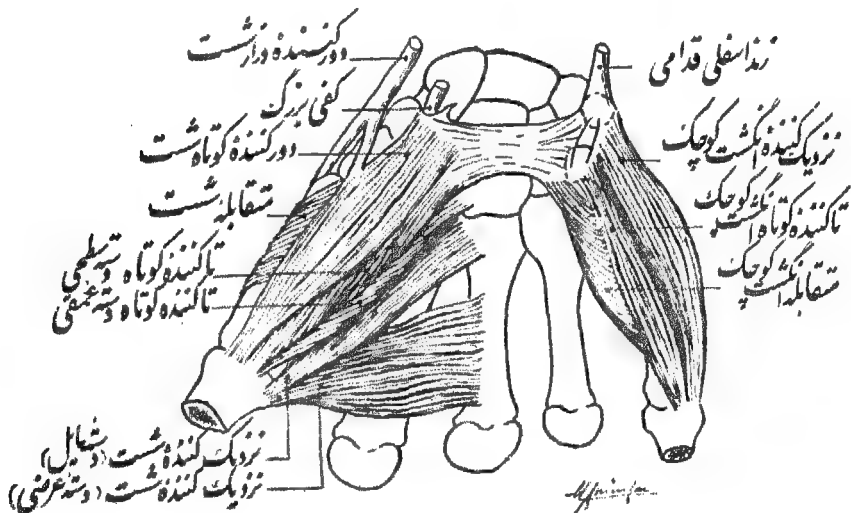 دورکنندهٔ دراز شست
کفی بزرگ
دورکنندهٔ کوتاه شست
متقابله شست
تاکننده کوتاه دسته سطحی
تاکننده کوتاه دسته عمقی
نزدیک کنندهٔ شست (د. مایل)
نزدیک کنندهٔ شست (دسته عرضی)
زند اسفلی قدامی
نزدیک کنندهٔ انگشت کوچک
تاکننده کوتاه انگشت کوچک
متقابله انگشت کوچک